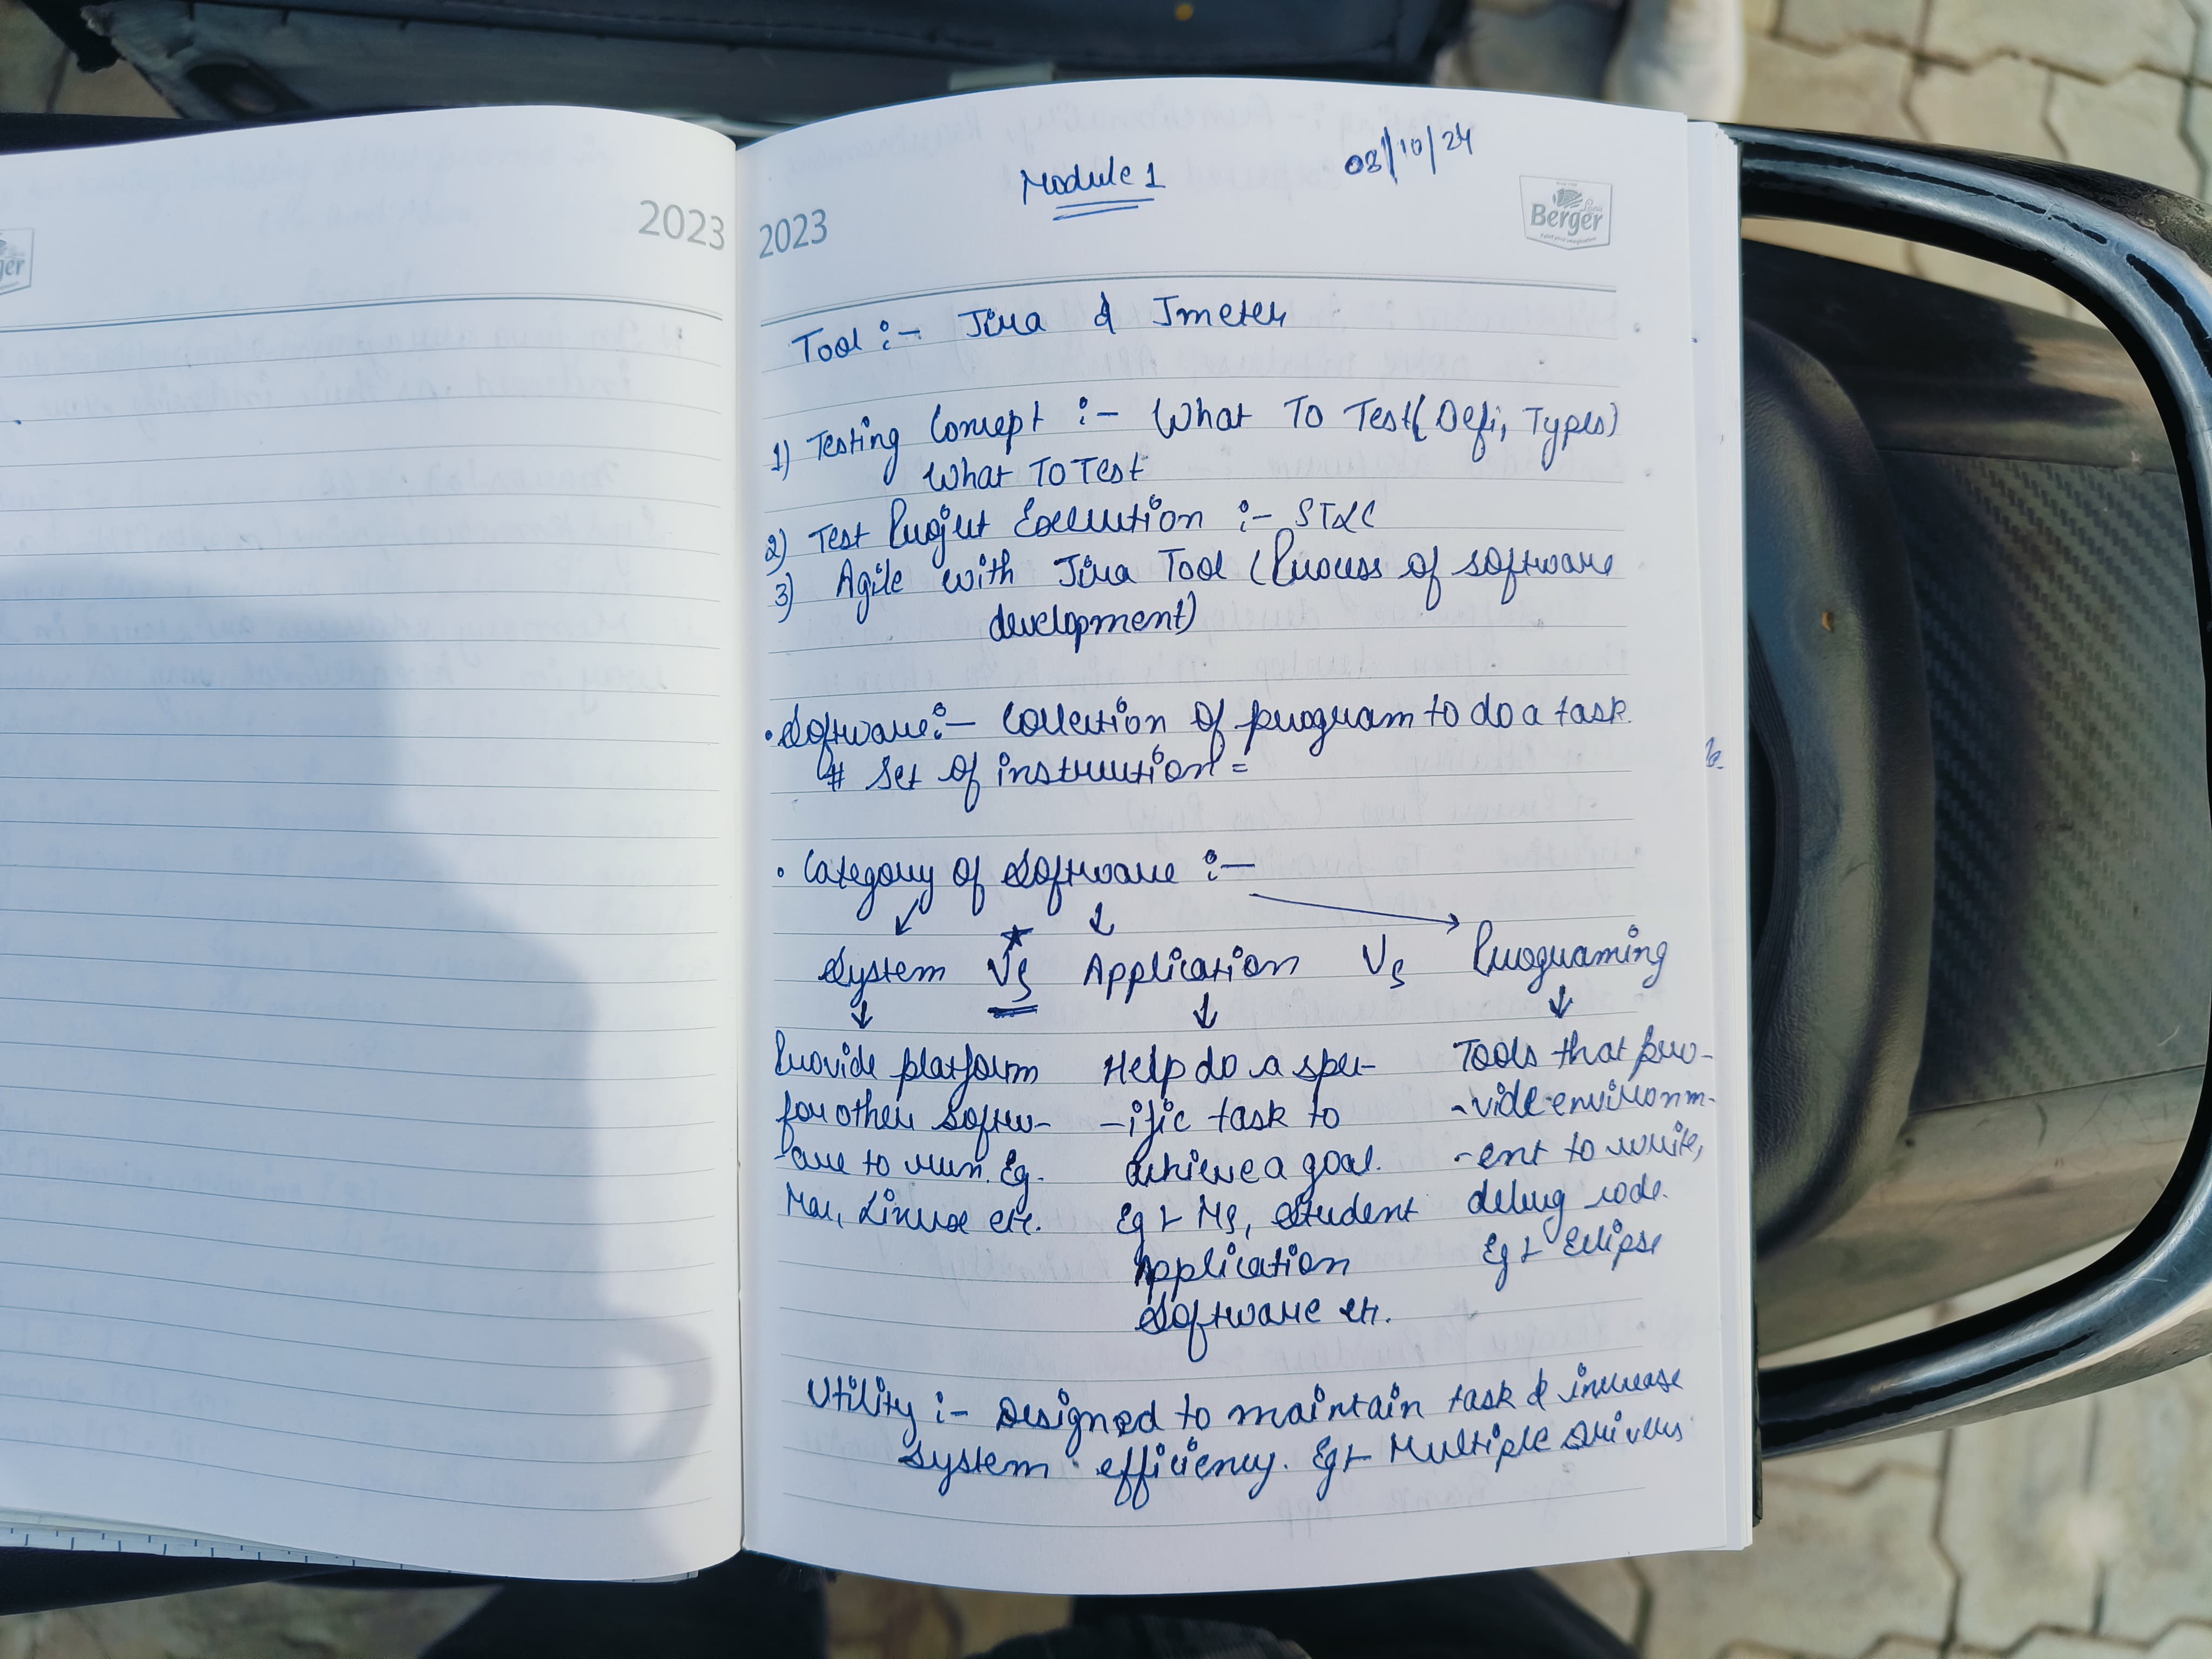 Module 1
08/10/24
2023
2023
Berger
Tool :- Jira & Jmeter
1) Testing Concept :- What To Test (Defi, Types)
What To Test
2) Test Project Execution :- STLC
3) Agile with Jira Tool (Process of software
development)
• Software :- Collection of program to do a task.
# Set of instruction =
• Category of Software :-
System Vs Application Vs Programing
Provide platform
for other softw-
-are to run. Eg.
Mac, Linux etc.
Help do a spec-
-ific task to
achieve a goal.
Eg :- MS, Student
Application
Software etc.
Tools that pro-
-vide environm-
-ent to write,
debug code.
Eg :- Eclipse
Utility :- Designed to maintain task & increase
system efficiency. Eg :- Multiple Drivers